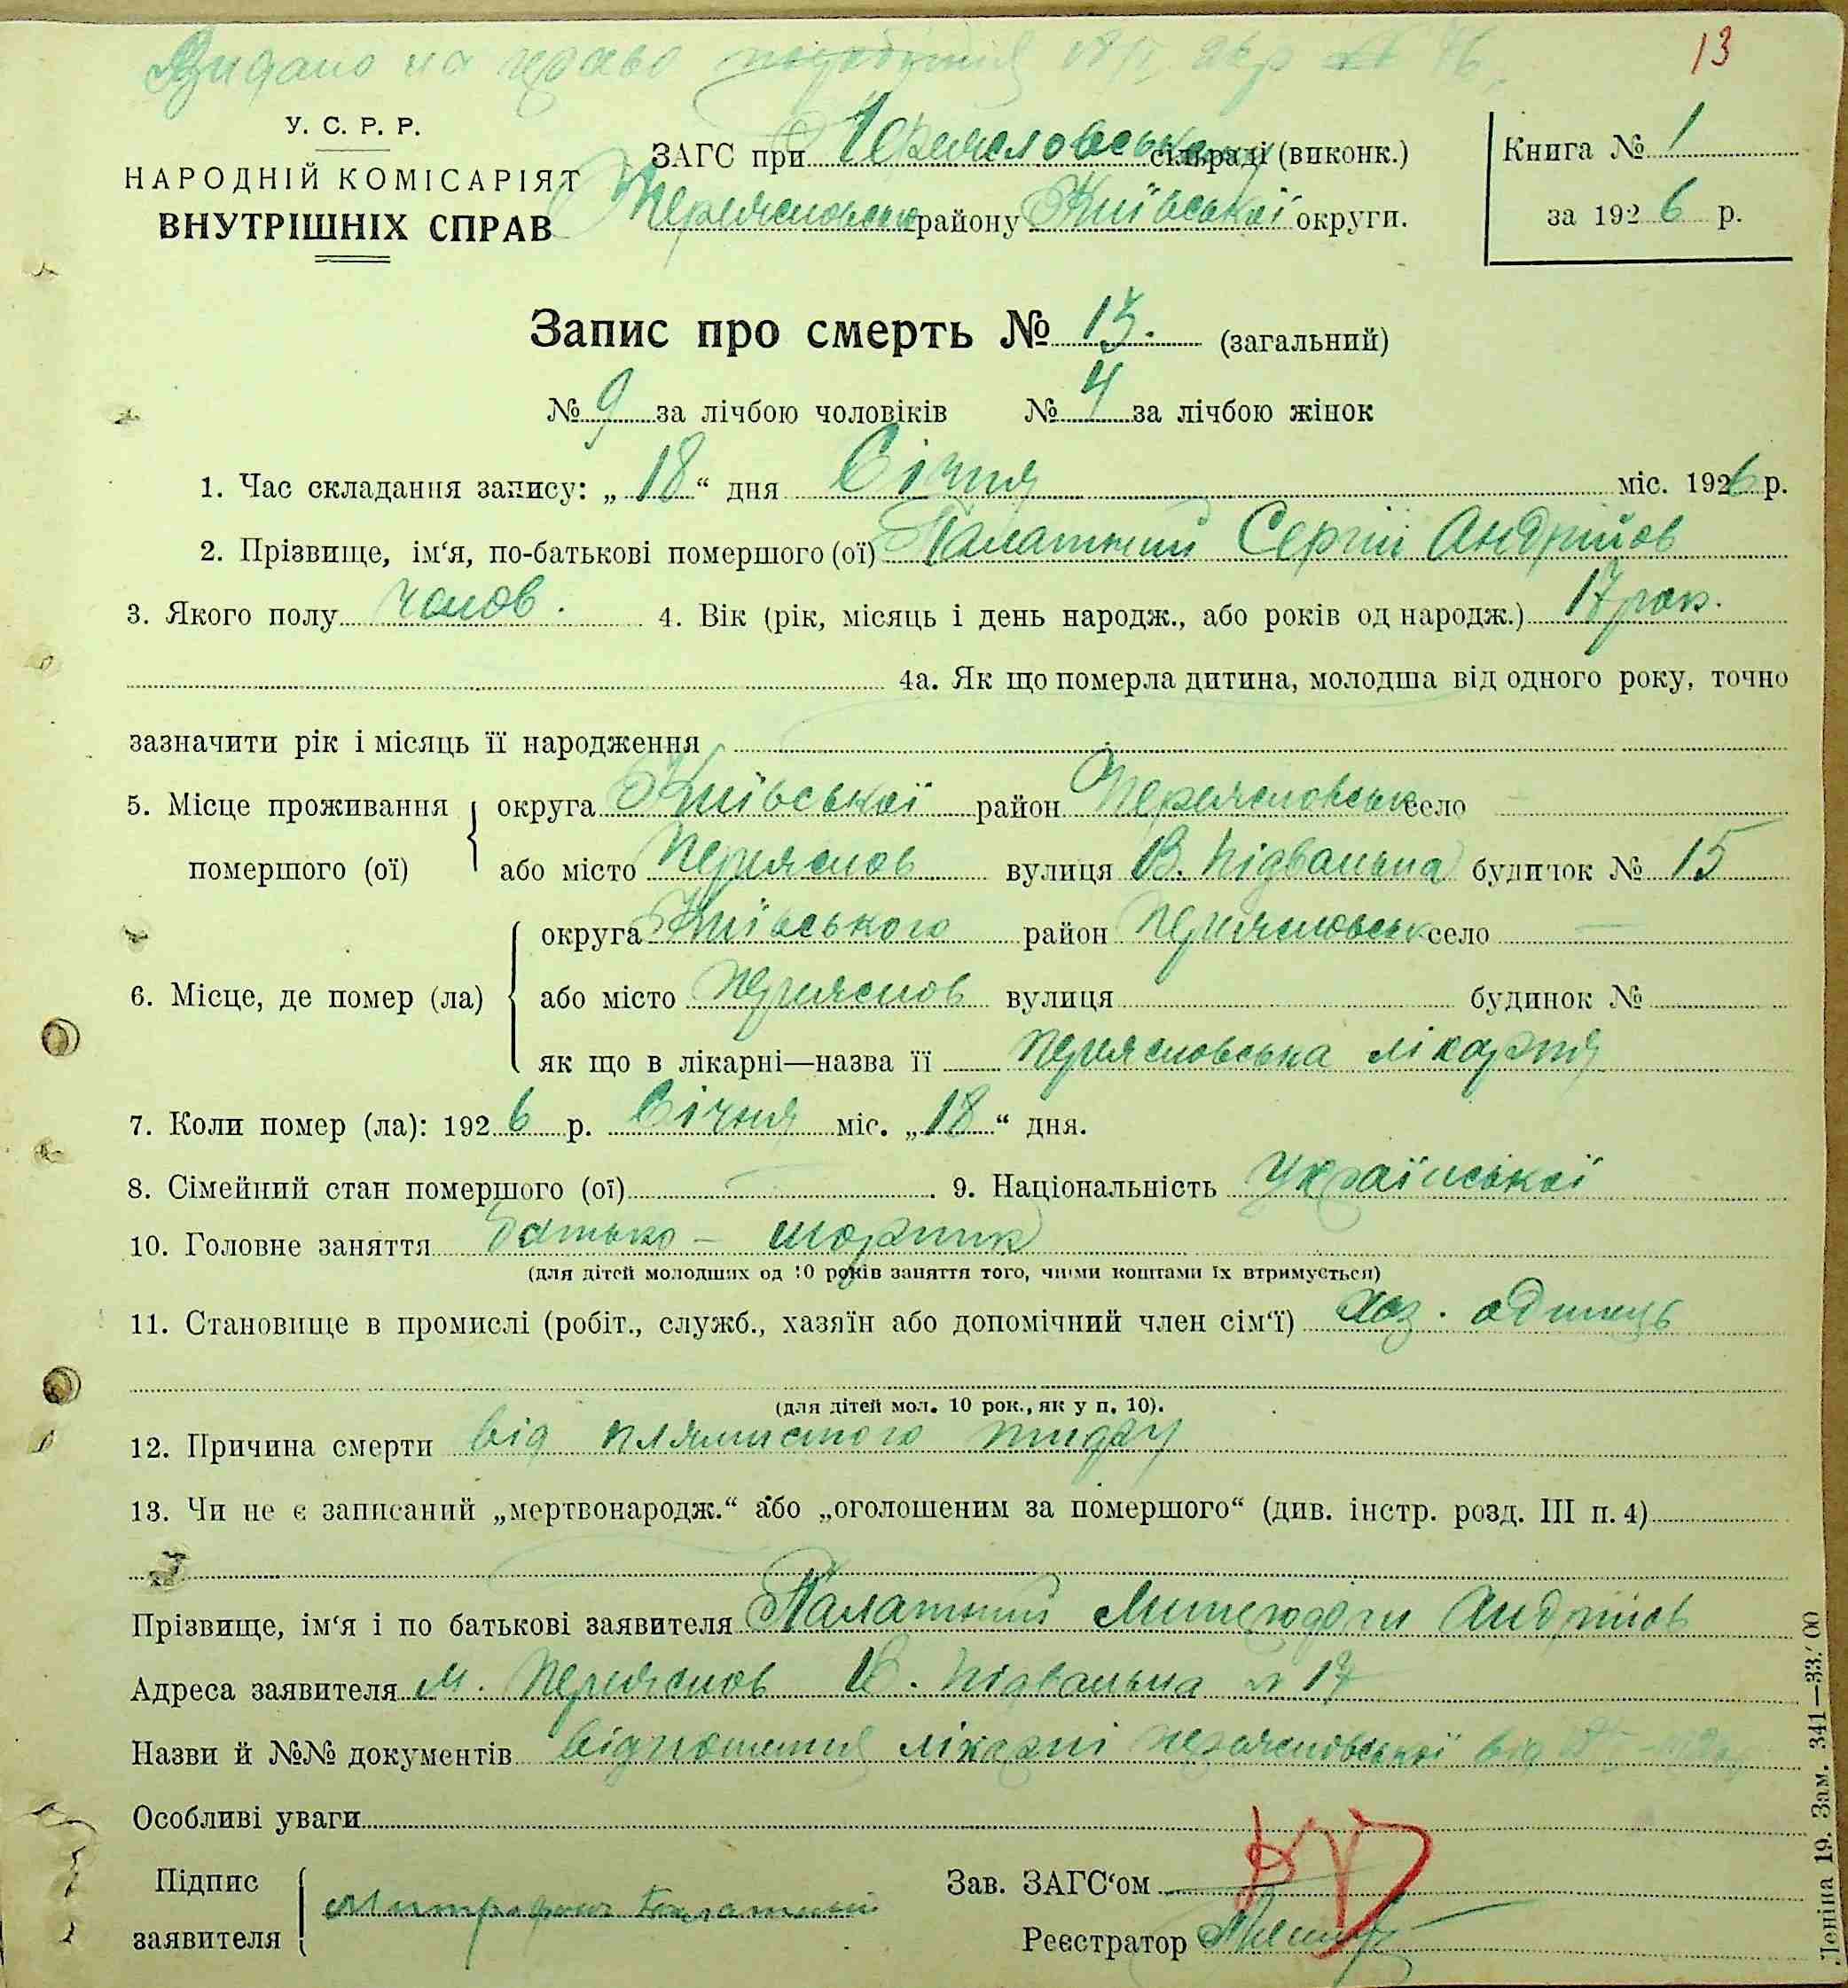 Видано на право 18/I 26 р № 16.
13
У. С. Р. Р.
НАРОДНІЙ КОМІСАРІЯТ
ВНУТРІШНІХ СПРАВ
ЗАГС при Переясловському сільраді (виконк.)
Переясловськ району Київської округи.
Книга № 1
за 1926 р.
Запис про смерть № 13. (загальний)
№ 9 за лічбою чоловіків № 4 за лічбою жінок
1. Час складання запису: „18“ дня Січня міс. 1926 р.
2. Прізвище, ім‘я, по-батькові помершого (ої) Палатний Сергій Андрійов
3. Якого полу чолов. 4. Вік (рік, місяць і день народж., або років од народж.) 17 рок.
4а. Як що померла дитина, молодша від одного року, точно
зазначити рік і місяць її народження
5. Місце проживання помершого (ої) округа Київської район Переясловськ село —
або місто Переяслов вулиця В. Підвальна будинок № 15
6. Місце, де помер (ла) округа Київського район Переясловськ село —
або місто Переяслов вулиця будинок №
як що в лікарні—назва її Переясловська лікарня
7. Коли помер (ла): 1926 р. Січня міс. „18“ дня.
8. Сімейний стан помершого (ої) — . 9. Національність Української
10. Головне заняття батько — шорник
(для дітей молодших од 10 років заняття того, чиїми коштами їх втримується)
11. Становище в промислі (робіт., служб., хазяїн або допомічний член сім‘ї) хоз. одинець
(для дітей мол. 10 рок., як у п. 10).
12. Причина смерти від плямистого тифу
13. Чи не є записаний „мертвонародж.“ або „оголошеним за помершого“ (див. інстр. розд. III п. 4)
Прізвище, ім‘я і по батькові заявителя Палатний Андрійов
Адреса заявителя м. Переяслов В. Підвальна № 17
Назви й №№ документів відношення лікарні переясловської від
Особливі уваги
Підпис заявителя Митрофан Палатний
Зав. ЗАГС‘ом
Реєстратор
Леніна 19. Зам. 341—33.